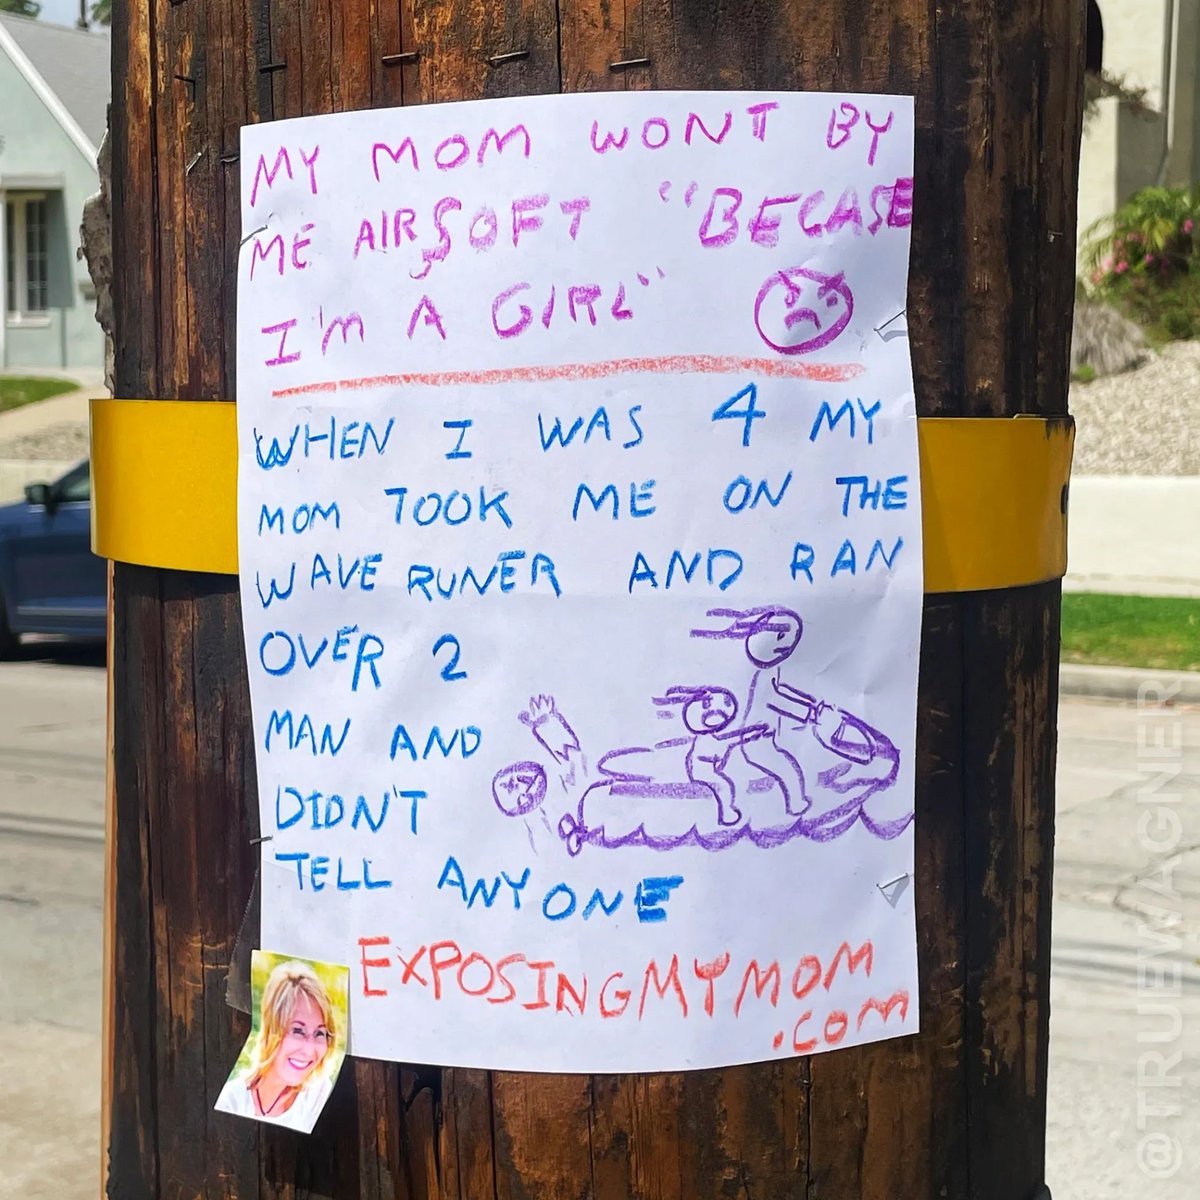 MY MOM WONT BY
ME AIRSOFT "BECASE
I'M A GIRL"
WHEN I WAS 4 MY
MOM TOOK ME ON THE
WAVE RUNER AND RAN
OVER 2
MAN AND
DIDN'T
TELL ANYONE
EXPOSINGMYMOM
.COM
@TRUEWAGNER